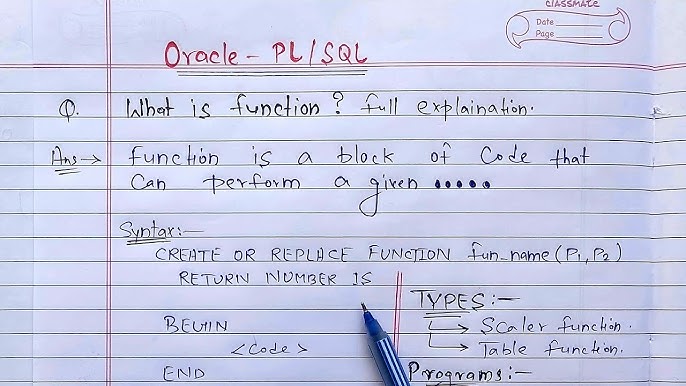 CLASSMATE
Date
Page
Oracle - PL/SQL
Q. What is function? full explaination.
Ans → function is a block of code that
can perform a given .....
Syntax:-
CREATE OR REPLACE FUNCTION fun_name(P1,P2)
RETURN NUMBER IS
BEGIN
<Code>
END
TYPES:-
→ Scaler function.
→ Table function.
Programs:-